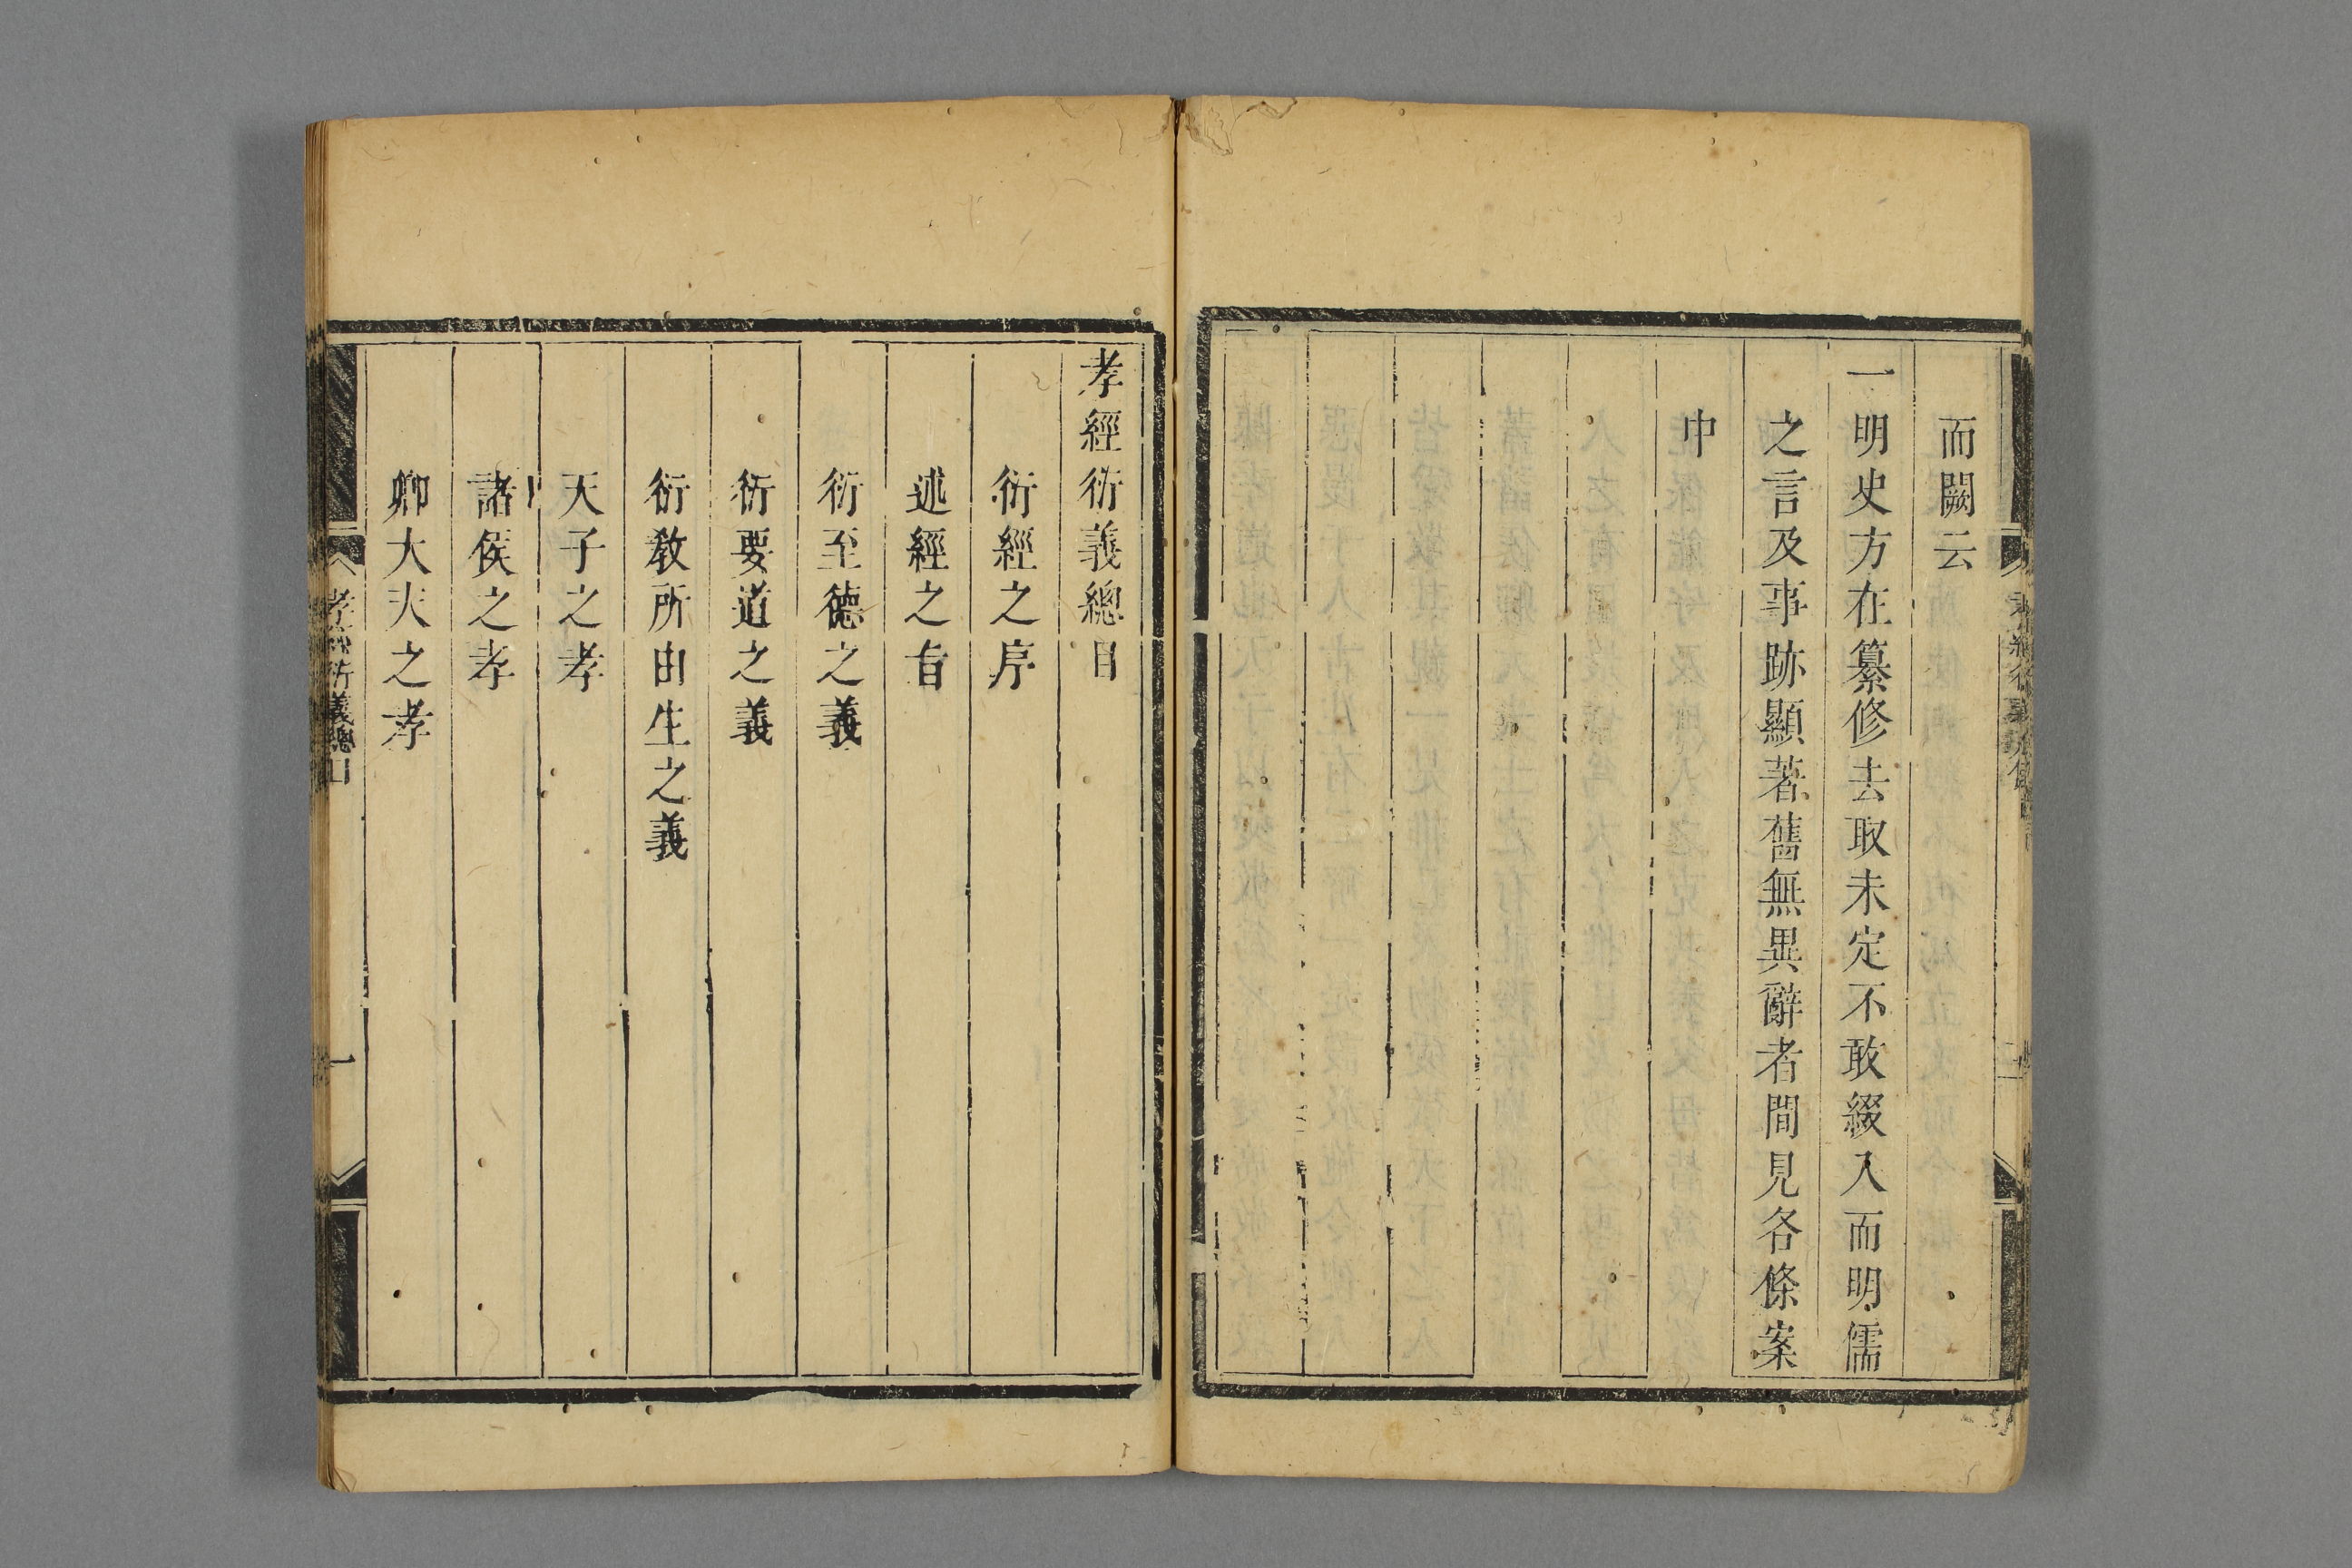 而闕云
一明史方在纂修去取未定不敢綴入而明儒
之言及事跡顯著舊無異辭者間見各條案
中
孝經衍義總目
衍經之序
述經之旨
衍至德之義
衍要道之義
衍教所由生之義
天子之孝
諸侯之孝
卿大夫之孝
孝經衍義總目
一